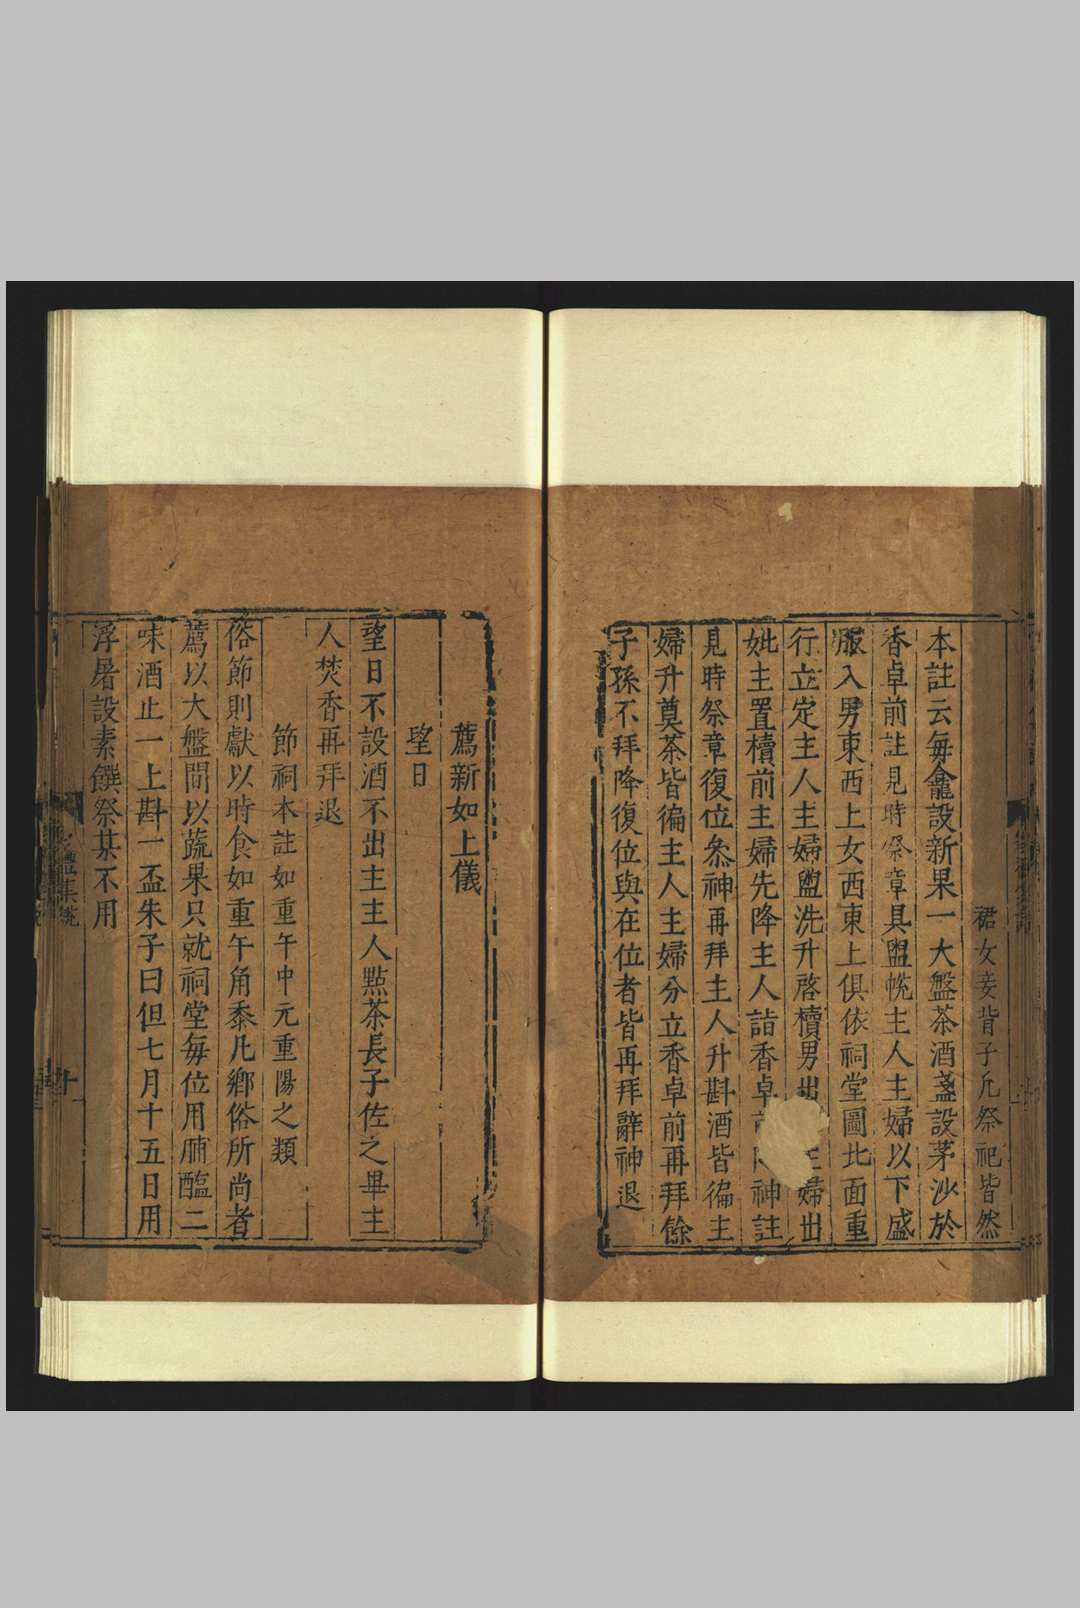 裙女妾背子凡祭祀皆然
本註云每龕設新果一大盤茶酒盞設茅沙於
香卓前註見時祭章具盥帨主人主婦以下盛
服入男東西上女西東上俱依祠堂圖北面重
行立定主人主婦盥洗升啓櫝男出主婦出
妣主置櫝前主婦先降主人詣香卓神註
見時祭章復位叅神再拜主人升斟酒皆徧主
婦升奠茶皆徧主人主婦分立香卓前再拜餘
子孫不拜降復位與在位者皆再拜辭神退
薦新如上儀
望日
望日不設酒不出主主人點茶長子佐之畢主
人焚香再拜退
節祠本註如重午中元重陽之類
俗節則獻以時食如重午角黍凡鄉俗所尚者
薦以大盤間以蔬果只就祠堂每位用脯醢二
味酒止一上斟一盃朱子曰但七月十五日用
浮屠設素饌祭某不用